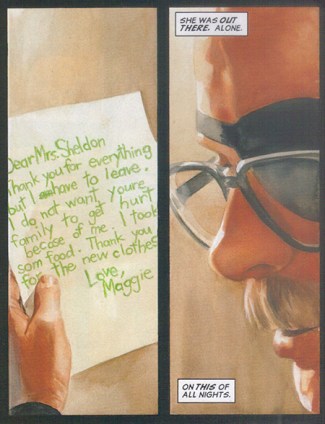 Dear Mrs. Sheldon
Thank you for everything
but I have to leave.
I do not want youre
family to get hurt
becose of me. I took
som food. Thank you
for the new clothes
Love,
Maggie
SHE WAS OUT
THERE. ALONE.
ON THIS OF
ALL NIGHTS.